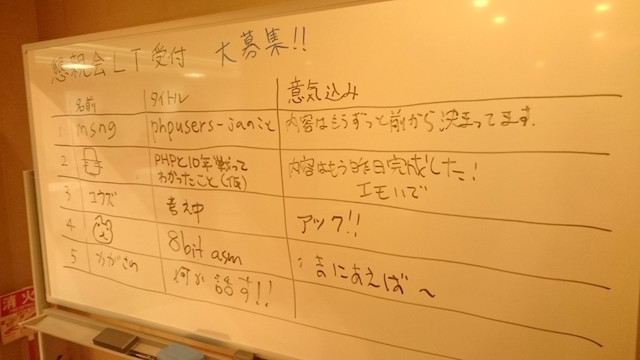 懇親会LT受付 大募集!!
名前 タイトル 意気込み
1 msng phpusers-jaのこと 内容はもうずっと前から決まってます.
2 PHPと10年戦って 内容はもう昨日完成した!
わかったこと(仮) エモいで
3 コウズ 考え中 アツク!!
4 8bit asm まにあえば~
5 ながさわ 何か話す!!
消火